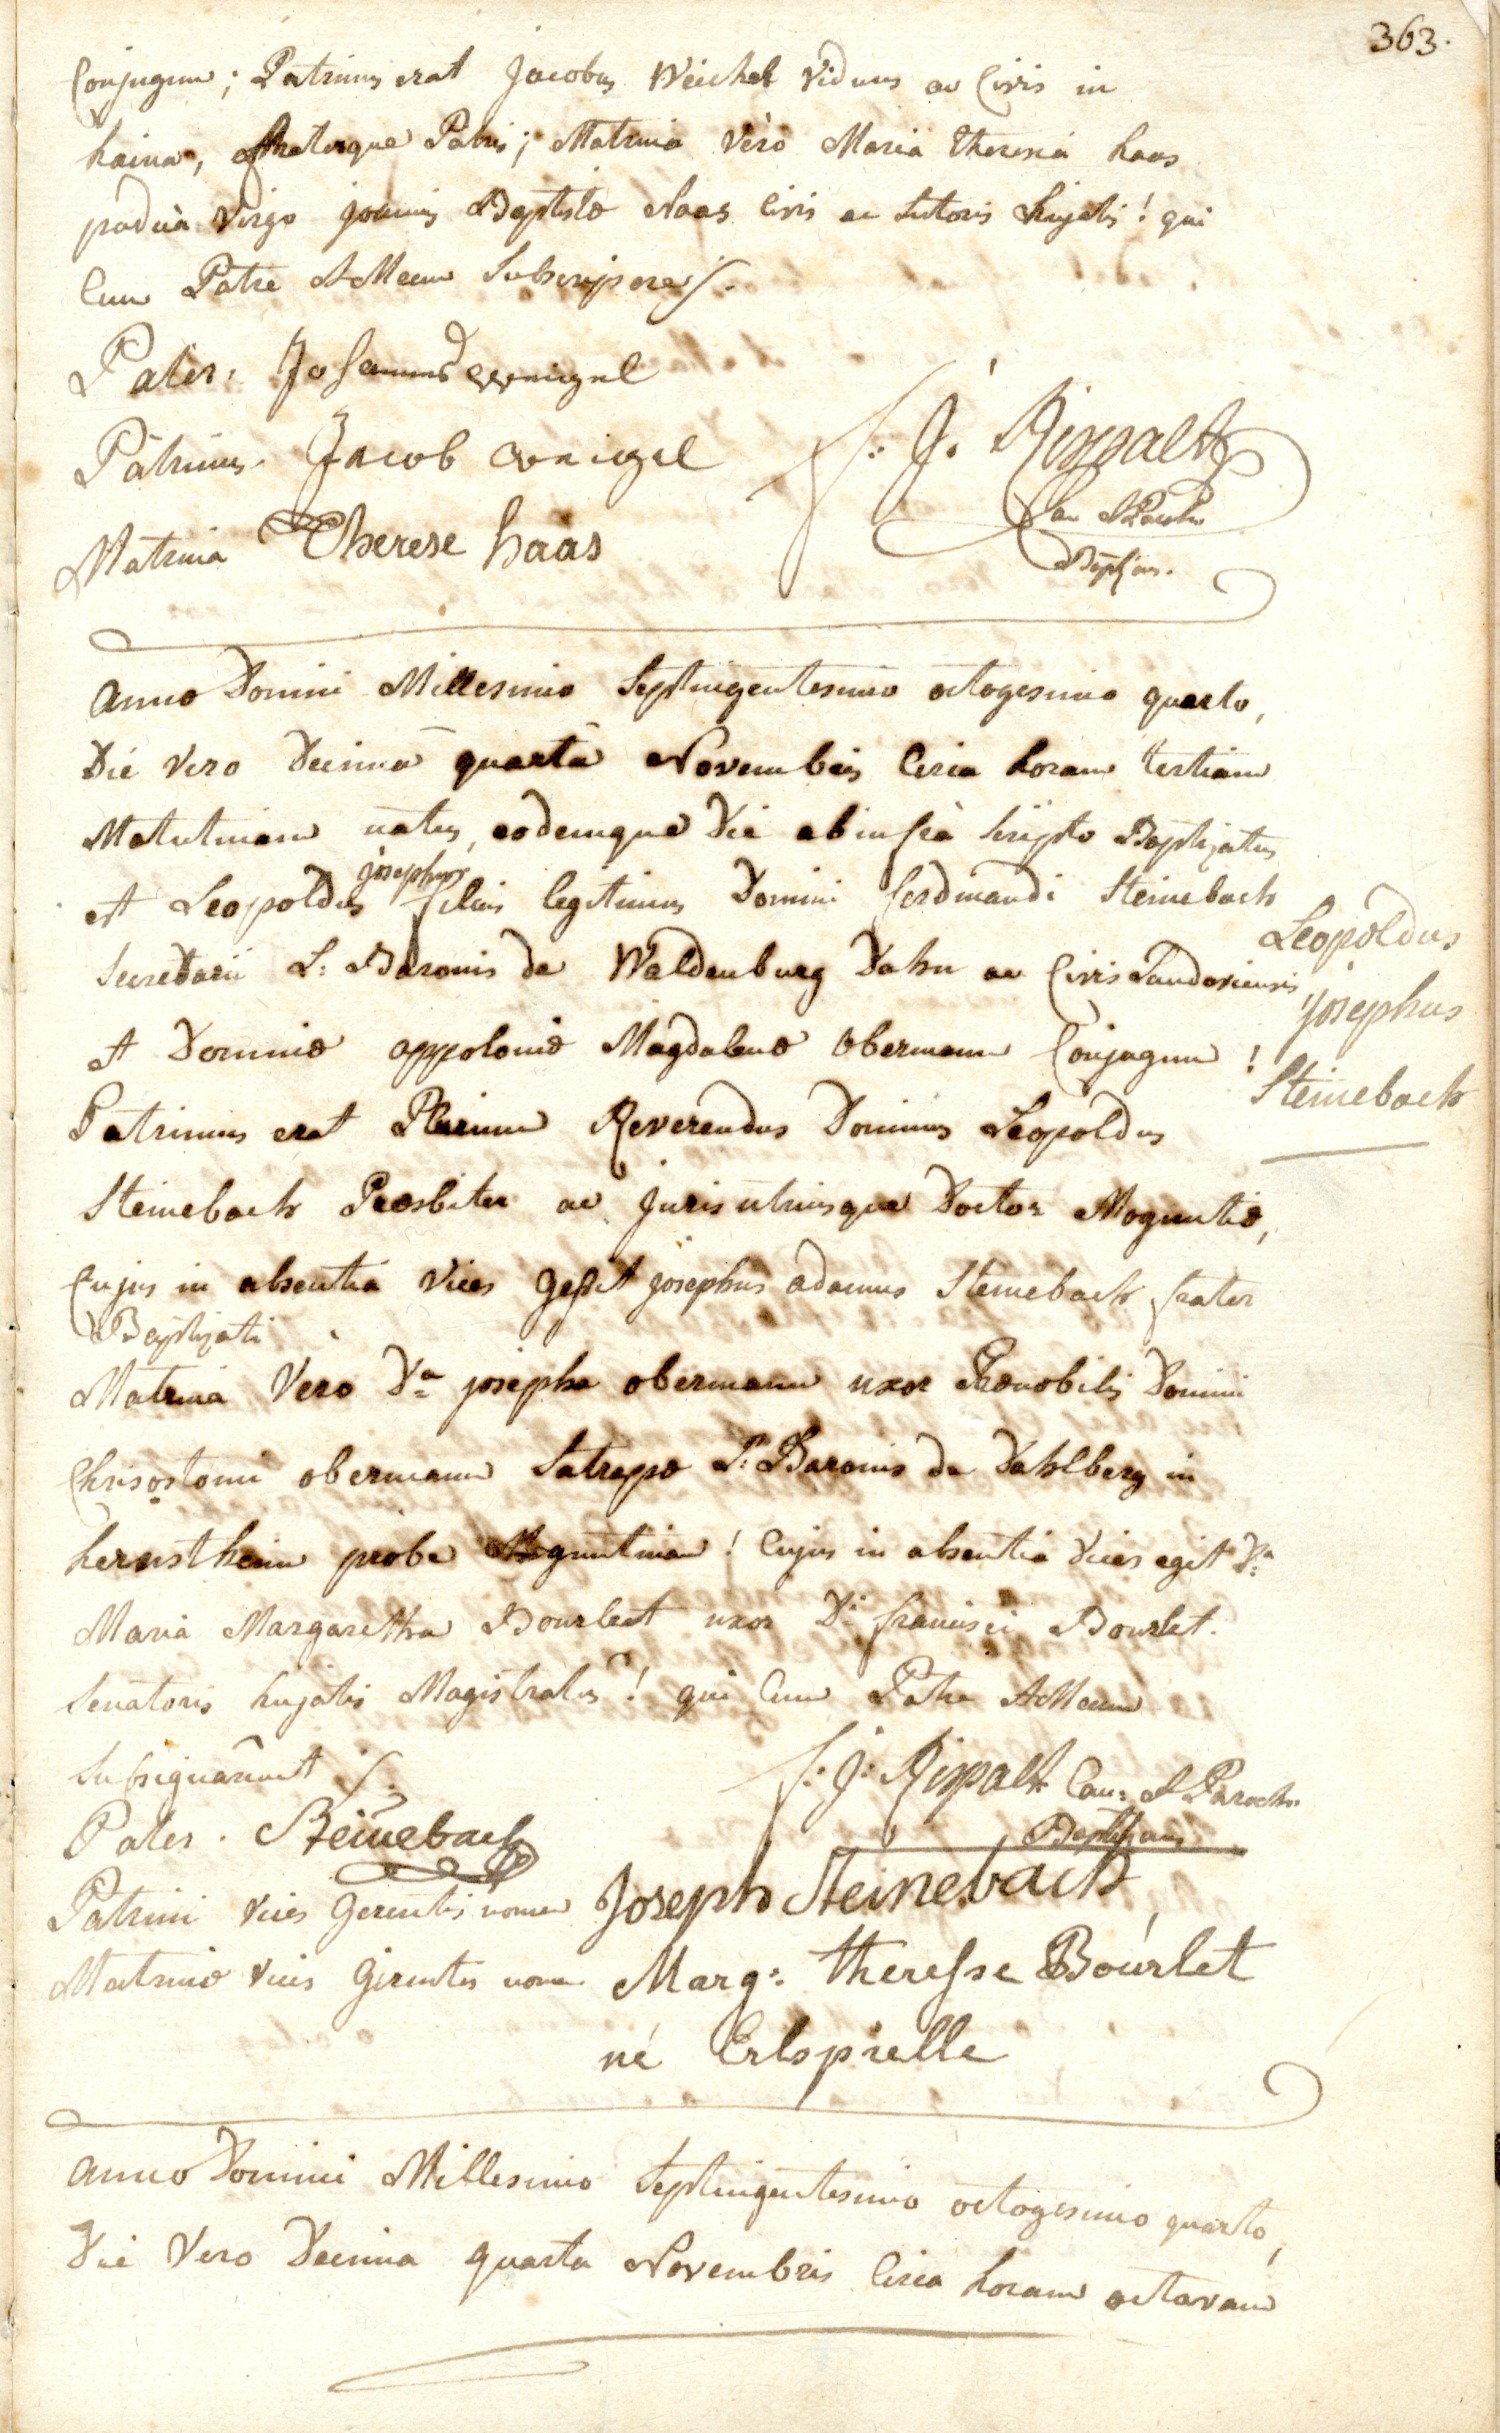 363.
Conjugum; Patrinus erat Jacobus Weichel Viduus ac Civis in
haina, fraterque Patris; Matrina Vero Maria Theresia haas
pudica Virgo joannis Baptistæ Haas Civis ac Sutoris hujatis! qui
Cum Patre et Mecum Subscripsere ∫.
Pater. Johannes Weigel
Patrinus. Jacob Weigel
F: J. Rippalt
Can et Paroch
Matrina Therese haas
Baptisans.
anno Domini Millesimo Septingentesimo octogesimo quarto,
Die Vero Decimâ quartâ Novembris Circa horam tertiam
Matutinam natus, eodemque Die ab infra Scripto Baptizatus
josephus
est Leopoldus filius legitimus Domini ferdinandi Steinebach
Leopoldus
Secretarii L: Baronis de Waldenburg Dahn ac Civis Landaviensis,
josephus
et Dominæ appoloniæ Magdalenæ Obermann Conjugum!
Steinebach
Patrinus erat Plurimum Reverendus Dominus Leopoldus
Steinebach Præsbiter ac juris utriusque Doctor Moguntiæ,
Cujus in absentia Vices gessit josephus adamus Steinebach frater
Baptizati
Matrina Verò Dna josepha obermann uxor Prænobilis Domini
Chrisostomi obermann Satrapæ L: Baronis de Dahlberg in
hernstheim probe Moguntiam! Cujus in absentia Vices egit Da
Maria Margaretha Bourlet uxor Di francisci Bourlet.
Senatoris hujatis Magistratus! qui Cum Patre et Mecum
Subsignârunt ∫.
F: J: Rippalt Can: et Paroch.
Baptizans
Pater. Steinebach
Patrini Vices Gerentis nomen Joseph Steinebach
Matrinæ Vices Gerentis nomen Marg: theresse Bourlet
né Erlspielle
anno Domini Millesimo Septingentesimo octogesimo quarto,
Die Vero Decima quarta Novembris Circa horam octavam